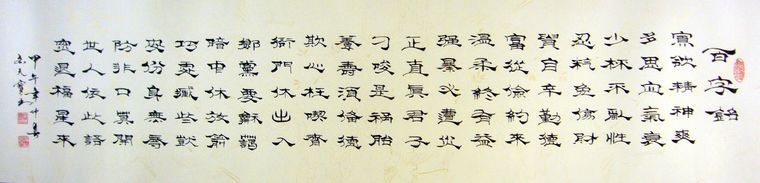 百字銘
寡欲精神爽
多思血氣衰
少杯不亂性
忍免傷財
貴自辛勤德
富從儉約來
溫柔終有益
強暴必遭災
正直真君子
刁唆是禍胎
養壽須修德
欺心枉喫齋
衙門休出入
鄉黨要龢藹
暗中休放箭
巧處藏些獃
安份身無辱
防非口莫開
世人依此語
災退福星來
甲午年